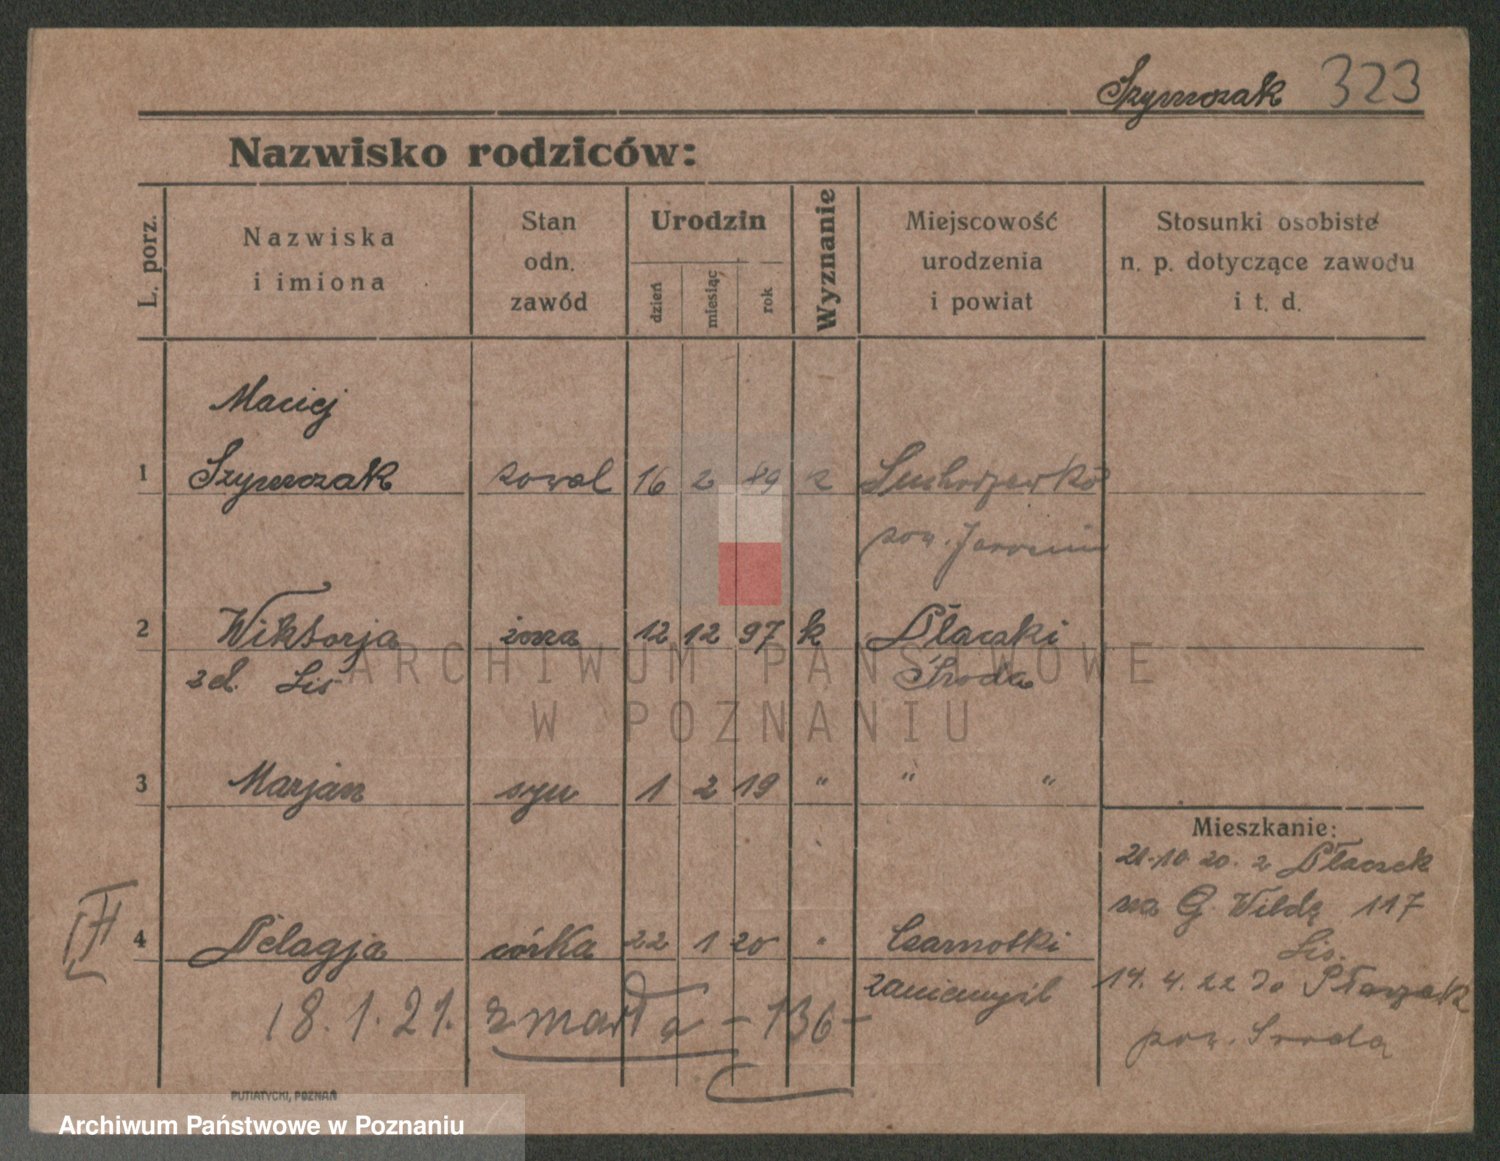 Szymczak 323
Nazwisko rodziców:
L. porz.
Nazwiska
i imiona
Stan
odn.
zawód
Urodzin
dzień
miesiąc
rok
Wyznanie
Miejscowość
urodzenia
i powiat
Stosunki osobiste
n. p. dotyczące zawodu
i t. d.
Maciej
1 Szymczak kowal 16 2 89 k Suchorzewko
pow. Jarocin
2 Wiktorja żona 12 12 97 k Płaczki
zd. Liś Środa
3 Marjan syn 1 2 19 " " "
Mieszkanie:
21.10.20. z Płaczek
na G. Wildę 117
4 Pelagja córka 22 1 20 " Czarnotki
Lis.
Zaniemyśl
14.4.22 do
pow. Sroda
18.1.21. zmarła - 136 -
PUTIATYCKI, POZNAŃ
ARCHIWUM PAŃSTWOWE
W POZNANIU
Archiwum Państwowe w Poznaniu